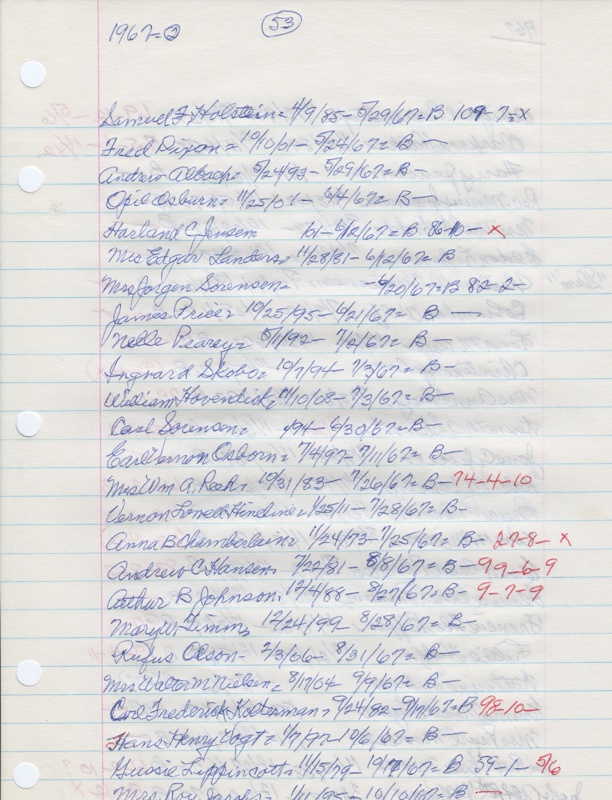 1967=② 53
Samuel F. Holstein= 4/9/85- 5/29/67= B 109-7=X
Fred Dixon= 10/10/01- 5/24/67= B —
Andrew Albach= 5/24/93- 5/29/67= B —
Opil Osburn= 11/25/01- 6/4/67= B —
Harland C. Jensen 61- 6/12/67= B 86-10- X
Mrs Edgar Landers= 11/28/81- 6/12/67= B
Mrs Jorgen Sorensen= -6/20/67=B 82-2-
James Price= 10/25/95- 6/21/67= B —
Nelle Pearey= 5/1/92- 7/2/67= B —
Ingvard Skobo= 10/7/94- 7/3/67= B —
William 11/10/08- 7/3/67= B —
Carl Sorensen= 6/30/67= B —
Earl Vernon Osborn= 7/4/97- 7/11/67= B —
Mrs Wm A. 10/31/83- 7/26/67= B- 74-4-10
Vernon Lowell 1/25/11- 7/28/67= B-
Anna B Chamberlain= 11/24/73- 7/25/67= B- 27-8- X
Andrew C. Hansen, 7/22/81- 8/8/67= B- 99-6-9
Arthur B Johnson, 12/4/88- 8/27/67= B- 9-7-9
Mary W. Timm, 12/24/99- 8/28/67= B-
Rufus Olson- 2/3/06- 8/31/67= B-
Mrs Walter M Nielsen= 8/17/04- 9/9/67= B-
Carl Frederick Kolterman= 9/24/82- 9/17/67=B 98-10-
Hans Henry Vogt= 10/6/67= B-
Gussie Lippincott= 11/15/79- B 59-1- 5/6
Mrs Roy Jacobs= 1/11/95- 10/10/67= B —